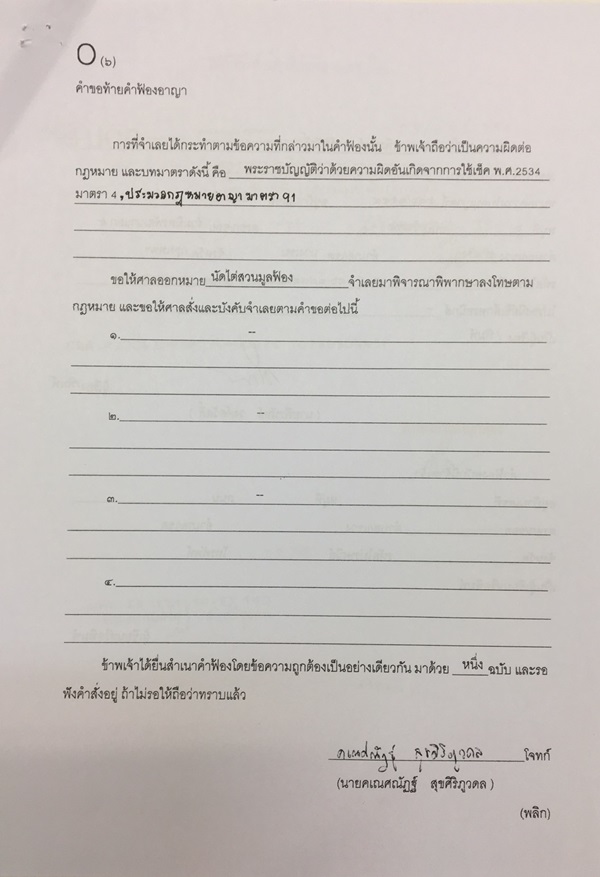 O (๖)
คำขอท้ายคำฟ้องอาญา
การที่จำเลยได้กระทำตามข้อความที่กล่าวมาในคำฟ้องนั้น ข้าพเจ้าถือว่าเป็นความผิดต่อ
กฎหมาย และบทมาตราดังนี้ คือ พระราชบัญญัติว่าด้วยความผิดอันเกิดจากการใช้เช็ค พ.ศ.2534
มาตรา 4 , ประมวลกฎหมายอาญา มาตรา 91
ขอให้ศาลออกหมาย นัดไต่สวนมูลฟ้อง จำเลยมาพิจารณาพิพากษาลงโทษตาม
กฎหมาย และขอให้ศาลสั่งและบังคับจำเลยตามคำขอต่อไปนี้
๑. --
๒. --
๓. --
๔.
ข้าพเจ้าได้ยื่นสำเนาคำฟ้องโดยข้อความถูกต้องเป็นอย่างเดียวกัน มาด้วย หนึ่ง ฉบับ และรอ
ฟังคำสั่งอยู่ ถ้าไม่รอให้ถือว่าทราบแล้ว
คเณศณัฏฐ์ สุขศิริภูวดล โจทก์
(นายคเณศณัฏฐ์ สุขศิริภูวดล )
(พลิก)